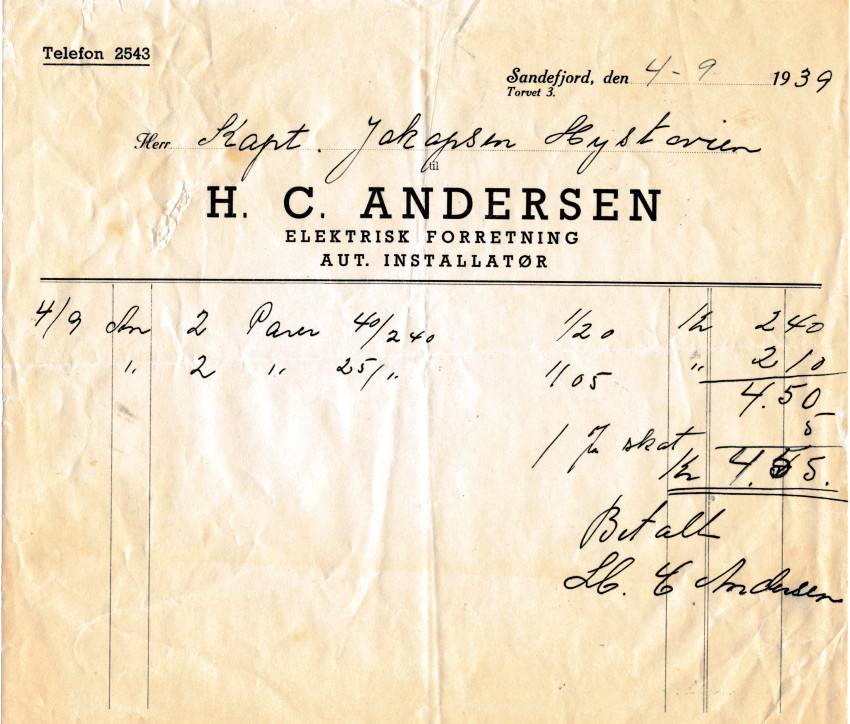 Telefon 2543
Sandefjord, den 4-9 1939
Torvet 3.
Herr Kapt. Jakapsen Hystavien
til
H. C. ANDERSEN
ELEKTRISK FORRETNING
AUT. INSTALLATØR
4/9 An 2 Pærer 40/240 1/20 Kr 2 40
" 2 " 25/" 1/05 " 2 10
4.50
1 % skat 5
Kr 4.55.
Betalt
H. C Andersen